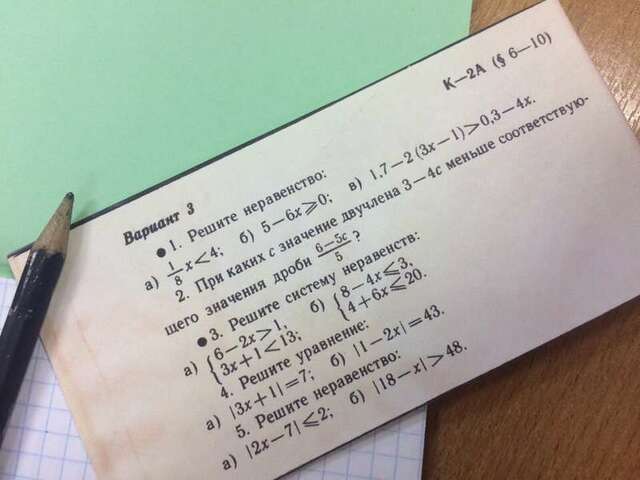 К—2А (§ 6—10)
Вариант 3
● 1. Решите неравенство:
а) 1/8 x<4; б) 5—6x⩾0; в) 1,7—2(3x—1)>0,3—4x.
2. При каких c значение двучлена 3—4c меньше соответствую-
щего значения дроби (6—5c)/5 ?
● 3. Решите систему неравенств:
а) { 6—2x>1, 3x+1<13; б) { 8—4x⩽3, 4+6x⩽20.
4. Решите уравнение:
а) |3x+1|=7; б) |1—2x|=43.
5. Решите неравенство:
а) |2x—7|⩽2; б) |18—x|>48.